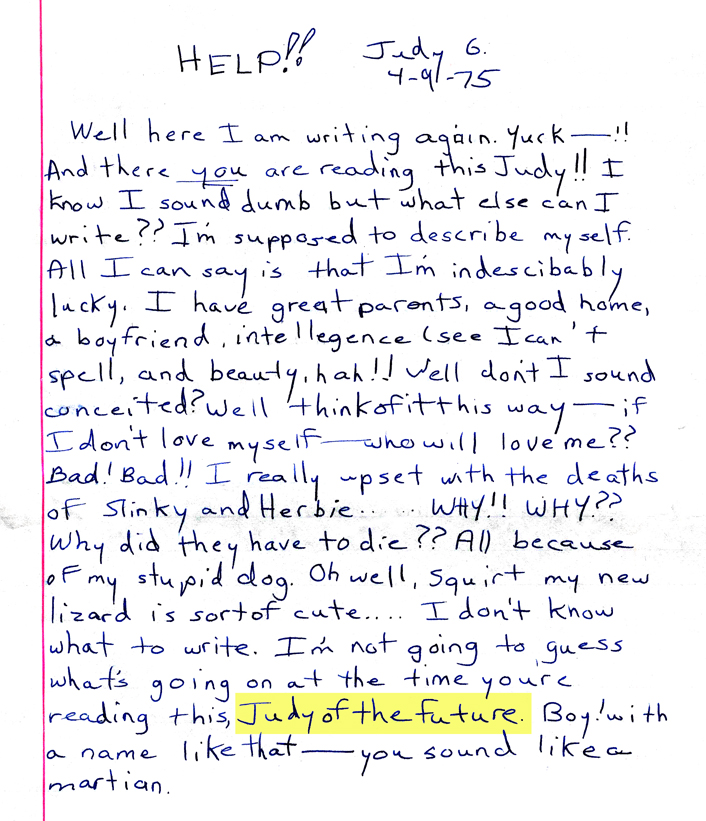 HELP!! Judy G.
4-9-75
Well here I am writing again. Yuck—!!
And there you are reading this Judy!! I
know I sound dumb but what else can I
write?? I'm supposed to describe myself.
All I can say is that I'm indescibably
lucky. I have great parents, a good home,
a boyfriend, intellegence (see I can't
spell, and beauty, hah!! Well don't I sound
conceited? Well think of it this way — if
I don't love myself — who will love me??
Bad! Bad!! I really upset with the deaths
of Slinky and Herbie...... WHY!! WHY??
Why did they have to die?? All because
of my stupid dog. Oh well, Squirt my new
lizard is sort of cute.... I don't know
what to write. I'm not going to guess
what's going on at the time you're
reading this, Judy of the future. Boy! with
a name like that — you sound like a
martian.